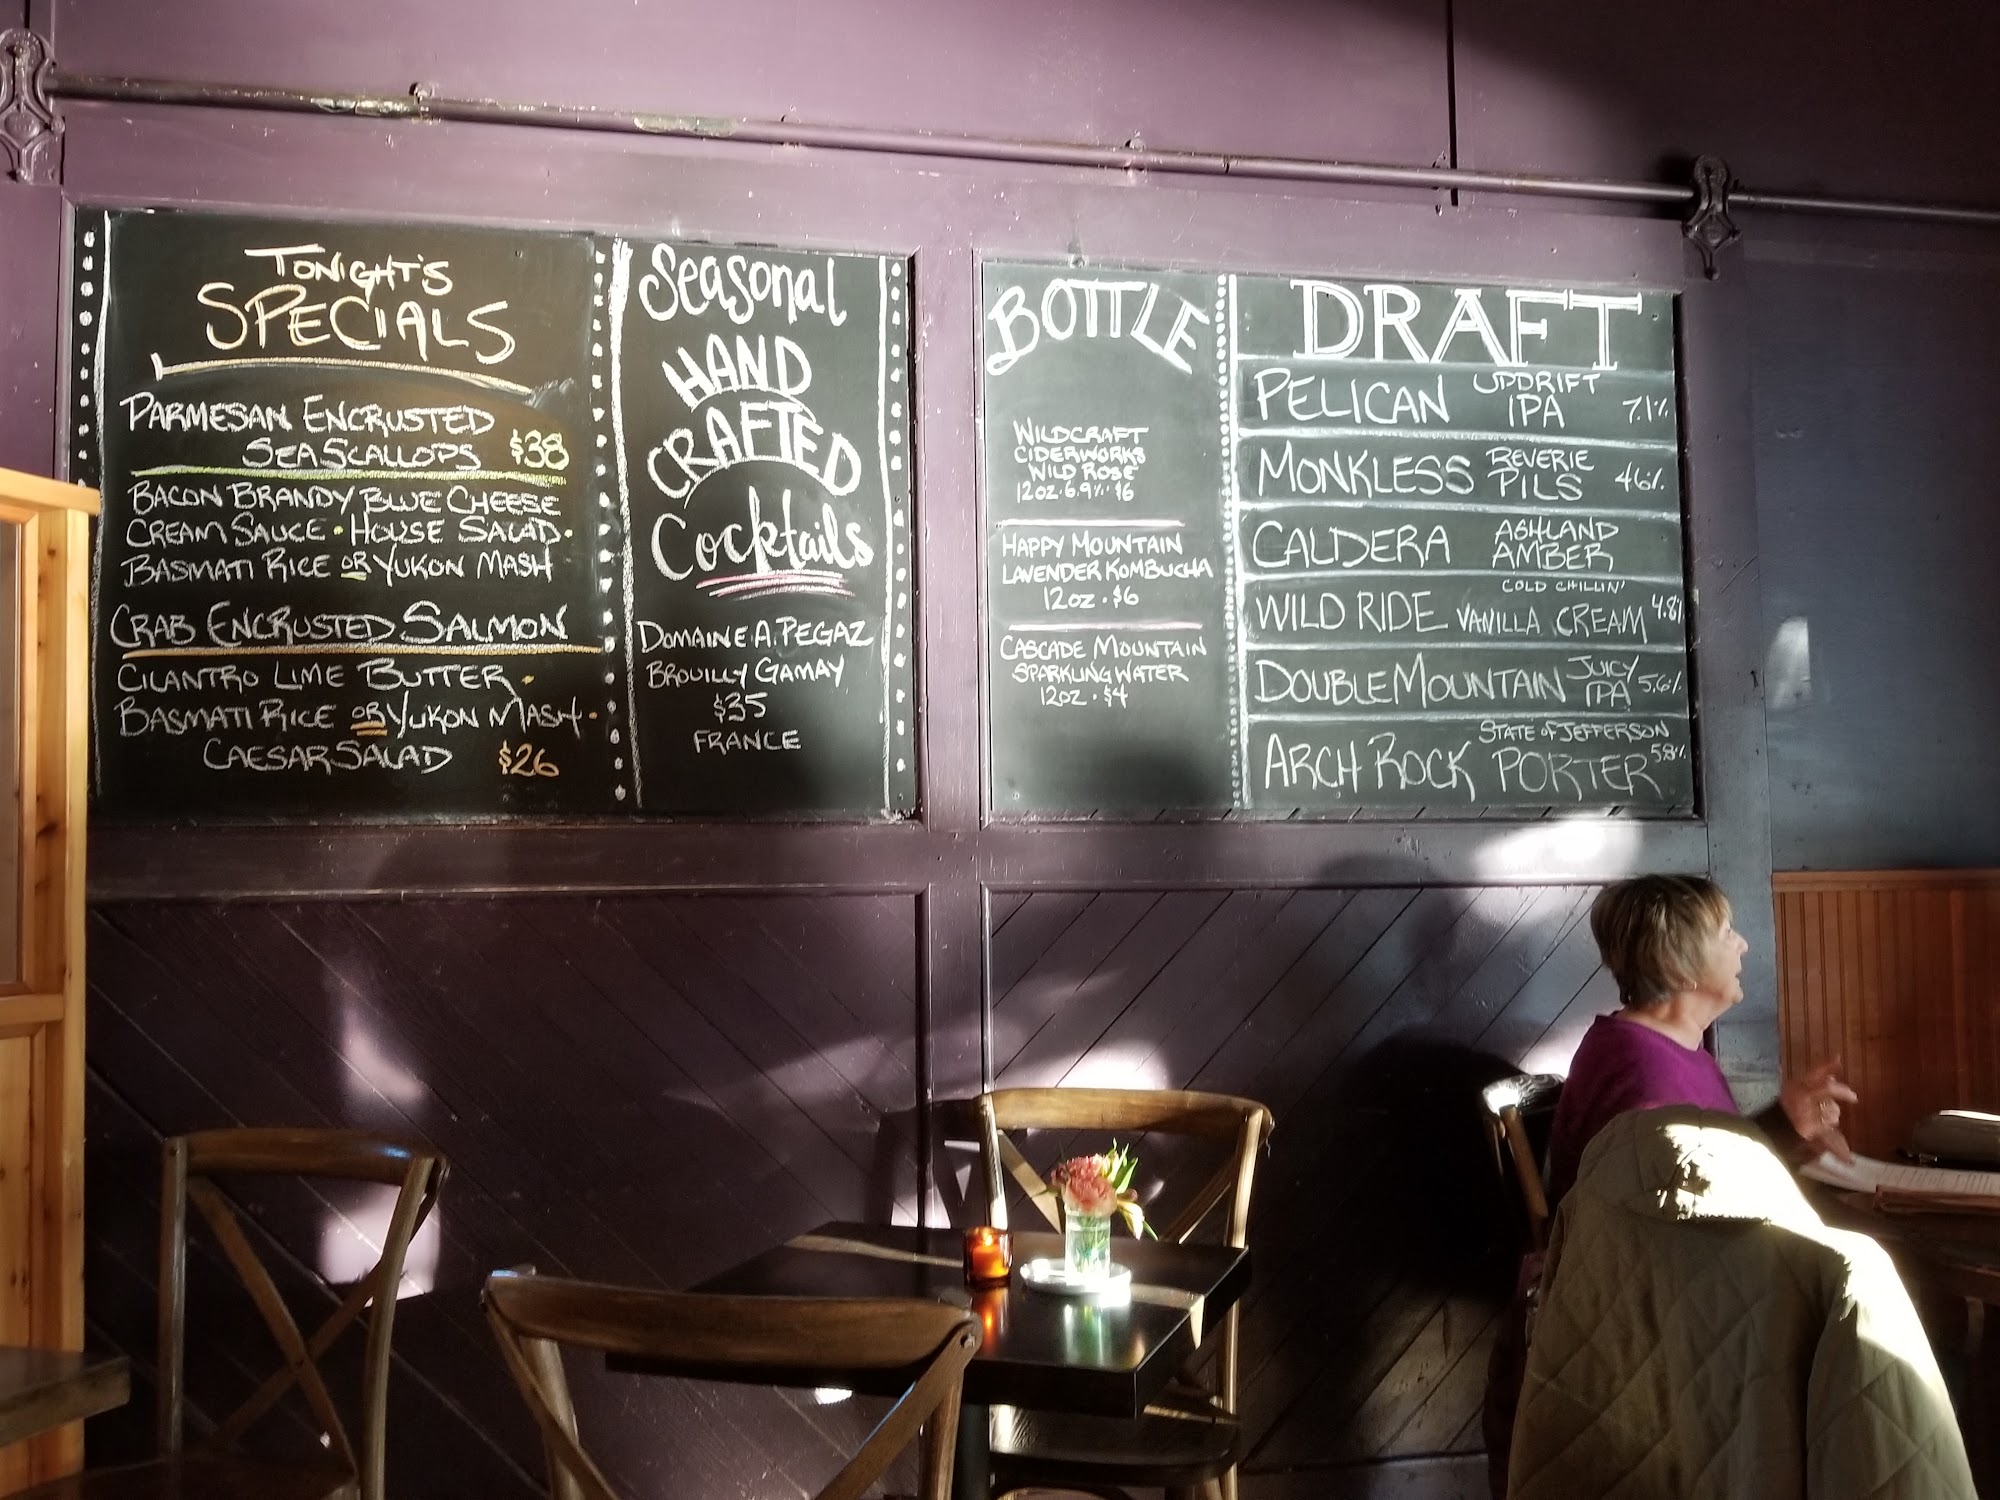 TONIGHT'S
SPECIALS
PARMESAN ENCRUSTED
SEA SCALLOPS $38
BACON BRANDY BLUE CHEESE
CREAM SAUCE • HOUSE SALAD •
BASMATI RICE OR YUKON MASH
CRAB ENCRUSTED SALMON
CILANTRO LIME BUTTER •
BASMATI RICE OR YUKON MASH •
CAESAR SALAD $26
Seasonal
HAND
CRAFTED
Cocktails
DOMAINE A. PEGAZ
BROUILLY GAMAY
$35
FRANCE
BOTTLE
WILDCRAFT
CIDERWORKS
WILD ROSE
12OZ • 6.9% • $6
HAPPY MOUNTAIN
LAVENDER KOMBUCHA
12OZ • $6
CASCADE MOUNTAIN
SPARKLING WATER
12OZ • $4
DRAFT
PELICAN UPDRIFT
IPA 7.1%
MONKLESS REVERIE
PILS 4.6%
CALDERA ASHLAND
AMBER
COLD CHILLIN'
WILD RIDE VANILLA CREAM 4.8%
DOUBLE MOUNTAIN JUICY
IPA 5.6%
STATE OF JEFFERSON
ARCH ROCK PORTER 5.8%